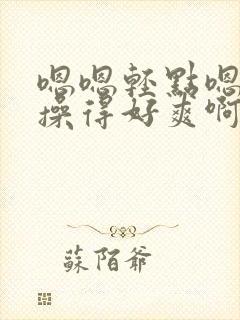 嗯嗯輕點嗯
操得好爽啊
蘇陌爺